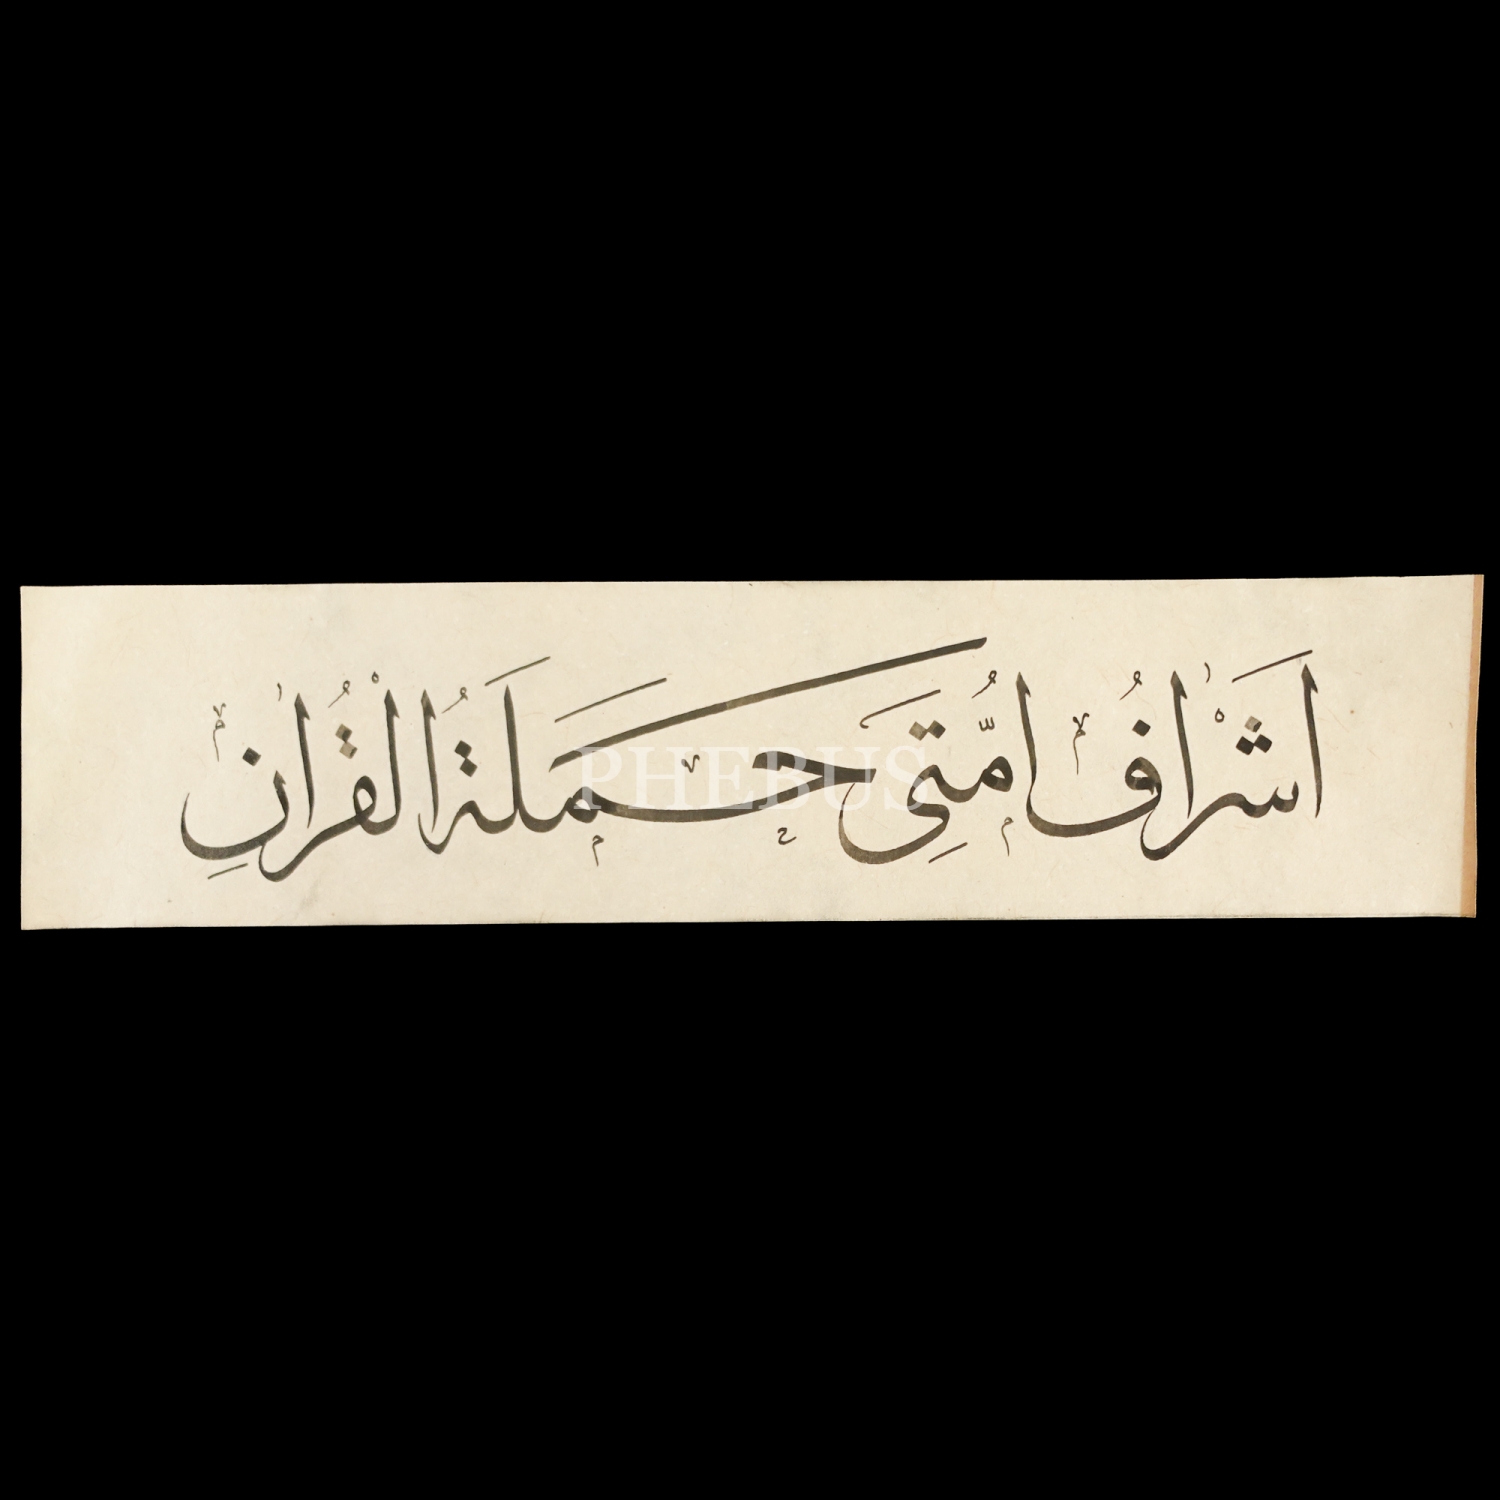 اَشْرَافُ اُمَّتِىَ حَمَلَةُ الْقُرْاٰنِ
PHEBUS